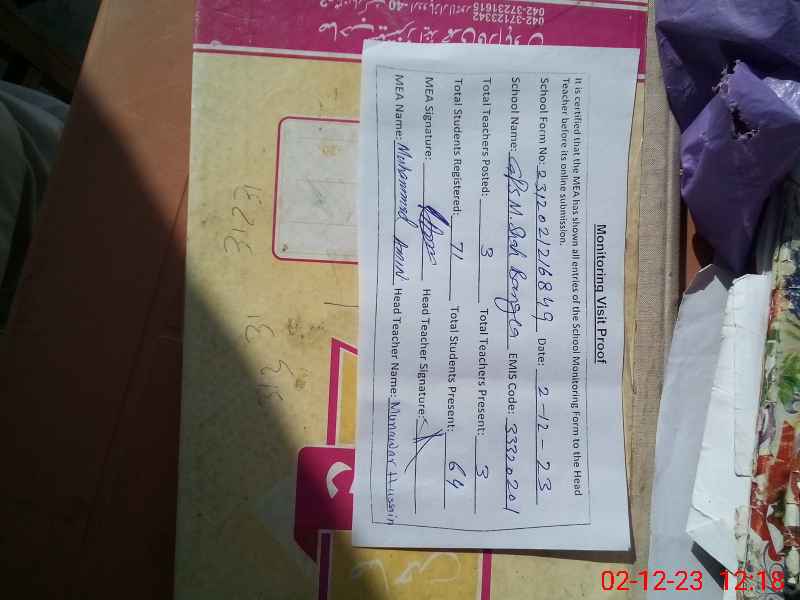 Monitoring Visit Proof
It is certified that the MEA has shown all entries of the School Monitoring Form to the Head
Teacher before its online submission.
School Form No: 231202121216849 Date: 2-12-23
School Name: GPS M. Shah Bangla EMIS Code: 33320201
Total Teachers Posted: 3 Total Teachers Present: 3
Total Students Registered: 71 Total Students Present: 64
MEA Signature: Head Teacher Signature:
MEA Name: Muhammad Amin Head Teacher Name: Munawar Hussain
042-37123342
042-37231615
02-12-23 12:18